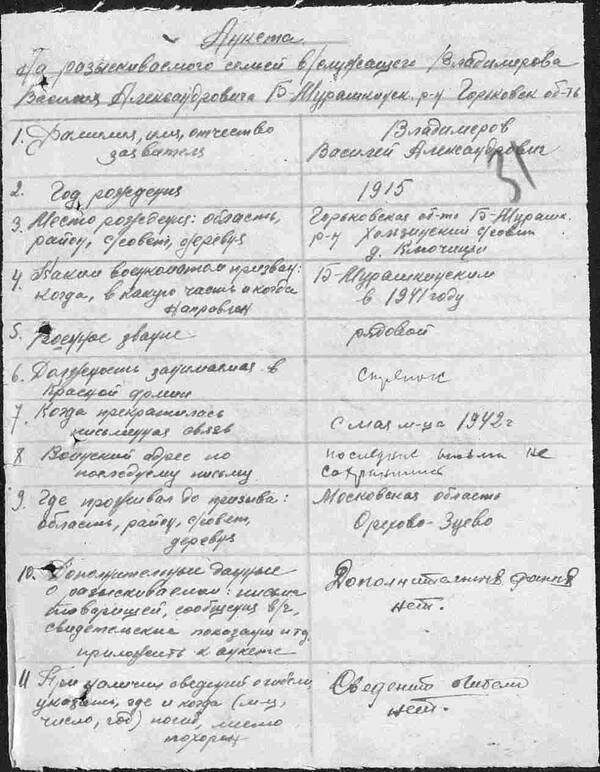 Анкета
На разыскиваемого семьей в/служащего Владимерова
Василия Александровича Б-Мурашкинск. р-н Горьковск об-ть
1. Фамилия, имя, отчество
заявителя
Владимеров
Василей Александрович
31
2. Год рождения
1915
3. Место рождения: область,
район, с/совет, деревня
Горьковская об-ть Б-Мурашк.
р-н с/совет
д. Ключищи
4. Каким военкоматом призван:
когда, в какую часть и когда
направлен
Б-Мурашкинским
в 1941 году
5. Военное звание
рядовой
6. Должность занимаемая в
Красной армии
Стрелок
7. Когда прекратилась
письменная связь
с мая м-ца 1942 г
8. Воинский адрес по
последнему письму
последние письма не
сохранились
9. Где проживал до призыва:
область, район, с/совет,
деревня
Московская область
Орехово-Зуево
10. Дополнительные данные
о разыскиваемом: письма
товарищей, сообщения в/ч,
свидетельские показания и тд.
приложить к анкете
Дополнительных данных
нет.
11 При наличии сведений о гибели
указать, где и когда (м-ц,
число, год) погиб, место
похорон
Сведений о гибели
нет.